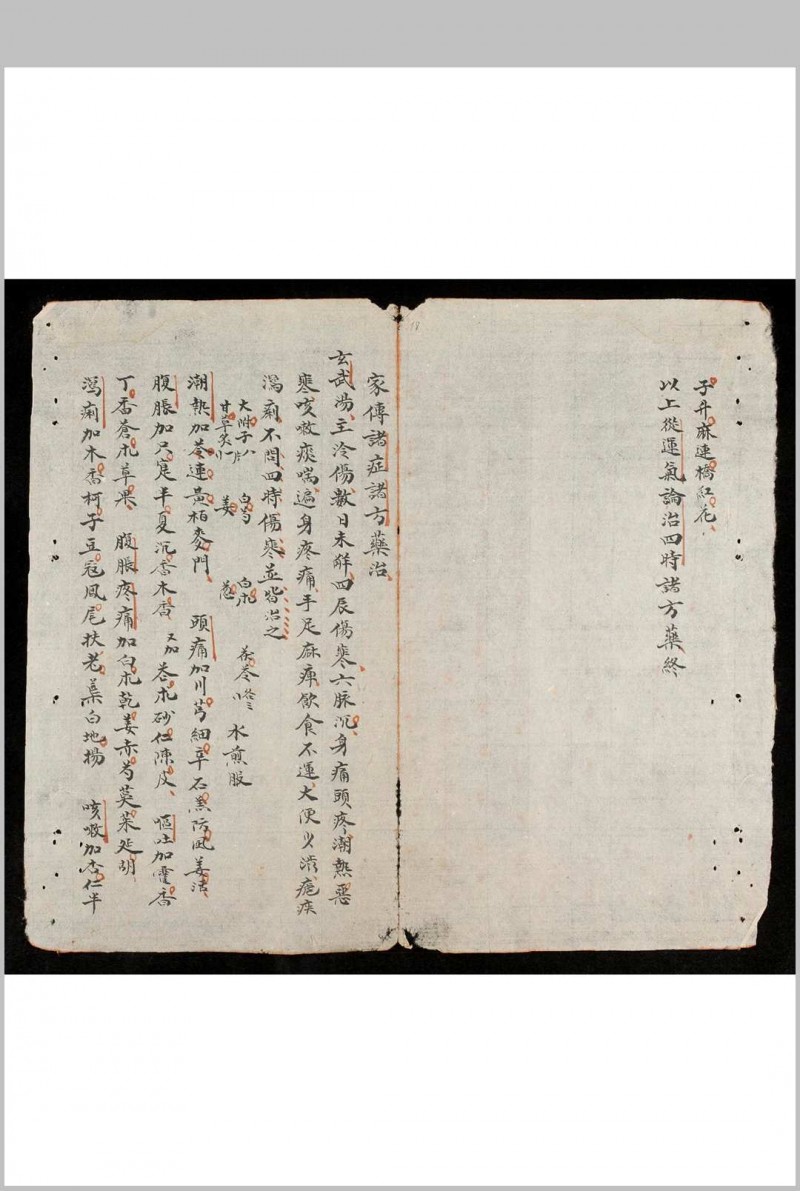 子升麻連橋紅花
以上從運氣論治四時諸方藥終
家傳諸症諸方藥治
玄武湯主冷傷數日未解四辰傷寒六脉沉身痛頭疼潮熱惡
寒咳嗽痰喘遍身疼痛手足麻痺飲食不運大便少
瀉痢不問四時傷寒並皆治之
大附子八片 白芍 白朮 茯苓
甘草炙 姜 葱 水煎服
潮熱加芩連黃栢麥門 頭痛加川芎細辛石羔防風羌活
腹脹加只寔半夏沉香木香 又加 朮砂仁陳皮 嘔吐加藿香
丁香蒼朮草果 腹脹疼痛加白朮乾姜赤芍茱延胡
瀉痢加木香柯子豆寇鳳尾扶老葉白地揚 咳嗽加杏仁半